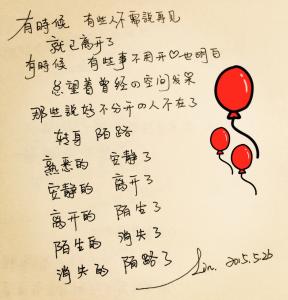 有時候 有些人不需說再見
就已离开了
有時候 有些事不用开♡也明白
总望着曾经の空间发呆
那些說好不分开の人不在了
转身 陌路
熟悉的 安静了
安静的 离开了
离开的 陌生了
陌生的 消失了
消失的 陌路了
2015.5.26